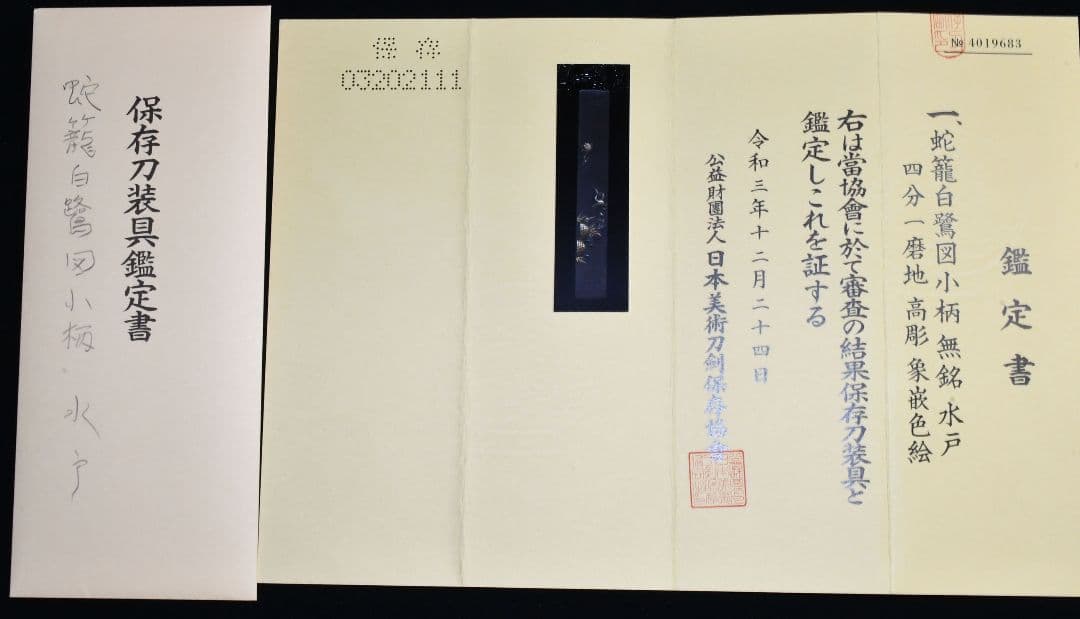 保存刀装具鑑定書
蛇籠白鷺図小柄 水戸
№ 4019683
鑑定書
一、蛇籠白鷺図小柄 無銘 水戸
四分一磨地 高彫 象嵌色絵
右は當協會に於て審査の結果保存刀装具と
鑑定しこれを証する
令和三年十二月二十四日
公益財團法人 日本美術刀剣保存協會
保存
03202111